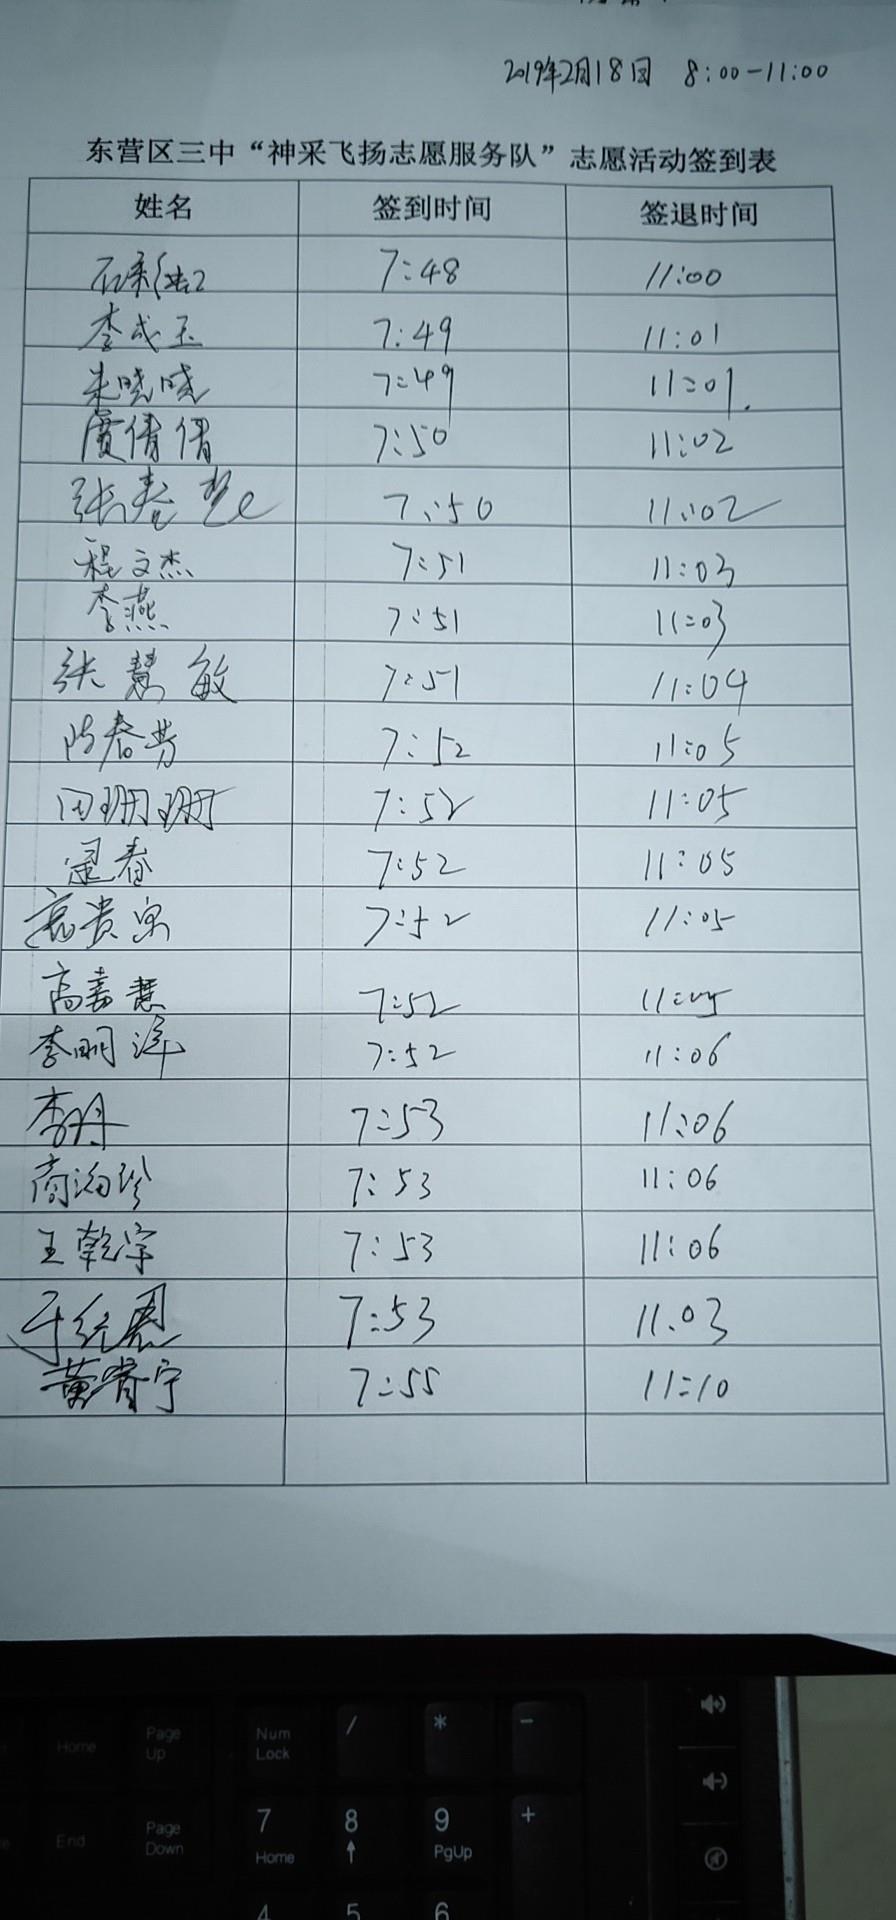 2019年2月18日 8:00-11:00
东营区三中“神采飞扬志愿服务队”志愿活动签到表
姓名 签到时间 签退时间
7:48 11:00
李成玉 7:49 11:01
朱晓晓 7:49 11:01.
贾倩倩 7:50 11:02
张春艳 7:50 11:02
程文杰 7:51 11:03
李燕 7:51 11:03
张慧敏 7:51 11:04
陈春芳 7:52 11:05
田珊珊 7:52 11:05
春 7:52 11:05
贵宾 7:52 11:05
高嘉慧 7:52 11:05
李明洋 7:52 11:06
李丹 7:53 11:06
商海珍 7:53 11:06
王乾宇 7:53 11:06
于 7:53 11.03
黄宁 7:55 11:10
Home Page Up Num Lock / * -
End Page Down 7 Home 8 ↑ 9 PgUp +
4 5 6